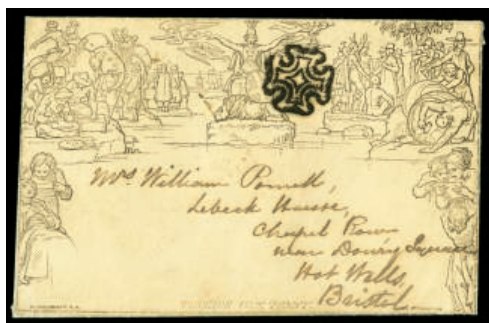 Mrs William Powell,
Lebeck House,
Chapel Row
near Dowry Square
Hot Wells,
Bristol